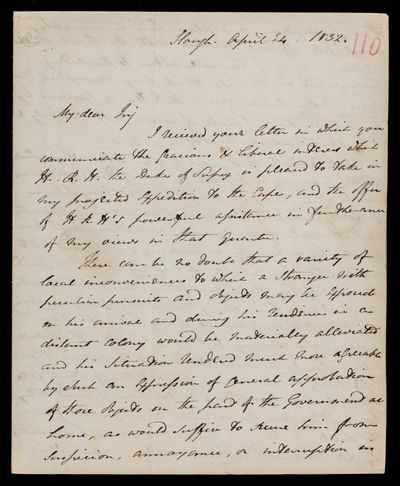 Slough. April 24. 1832.
110
My dear Sir
I received your letter in which you
communicate the Gracious & liberal interest which
H. R. H. the Duke of Sussex is pleased to take in
my projected Expedition to the Cape, and the offer
of H R H's powerful assistance in furtherance
of my views in that Quarter.
There can be no doubt that a variety of
local inconveniences to which a Stranger with
peculiar pursuits and objects may be exposed
on his arrival and during his residence in a
distant Colony would be materially alleviated
and his Situation rendered much more agreeable
by such an expression of General approbation
of those objects on the part of the Government at
home, as would suffice to secure him from
Suspicion, annoyance, or interruption in